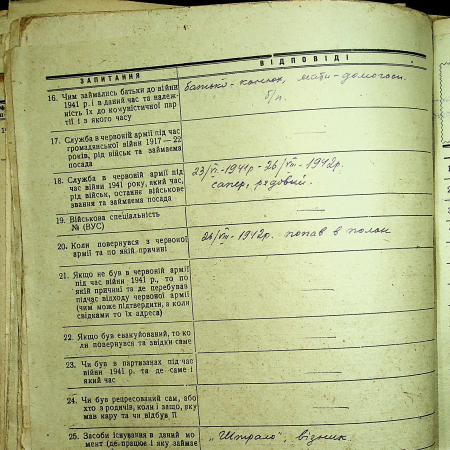 ЗАПИТАННЯ
ВІДПОВІДІ
16. Чим займались батьки до війни
1941 р. і в даний час та належ-
ність їх до комуністичної пар-
тії і з якого часу
батько - конюх, мати - домогосп.
б/п.
17. Служба в червоній армії під час
громадянської війни 1917—22
років, рід військ та займаєма
посада
18. Служба в червоній армії під
час війни 1941 року, який час,
рід військ, останнє військове
звання та займаєма посада
23/VI-1941р - 26/VII-1942р.
сапер, рядовий.
19. Військова спеціальність
№ (ВУС)
20. Коли повернувся з червоної
армії та по якій причині
26/VII-1942р. попав в полон
21. Якщо не був в червоній армії
під час війни 1941 р, то по
якій причині та де перебував
підчас відходу червоної армії
(чим може підтвердити, а коли
свідками то їх адреса)
22. Якщо був евакуйований, то ко-
ли повернувся та звідки саме
23. Чи був в партизанах під час
війни 1941 р. та де саме і
який час
24. Чи був репресований сам, або
хто з родичів, коли і защо, яку
мав кару та чи відбув її
25. Засоби існування в даний мо-
мент (де працює і яку займає
візник.